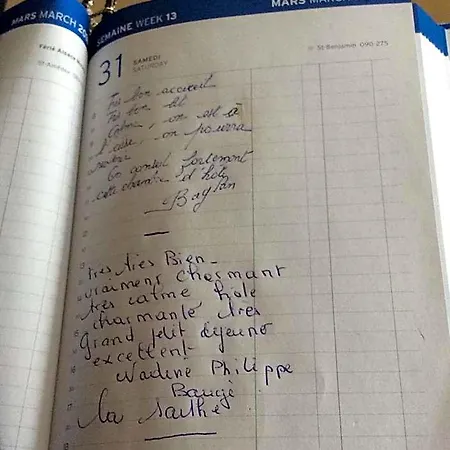 MARS MARCH 20
Férié Alsace
MARS MARCH
SEMAINE WEEK 13
31
SAMEDI
SATURDAY
St Benjamin 090-275
Très bon accueil
Très bon lit
Calme, on est à
l'aise, on pourra
On conseil fortement
cette chambre d'hôte
très très Bien -
vraiment charmant
très calme hote
charmante très
Grand petit dejeuné
excellent
Nadine Philippe
Baugé
la sarthe